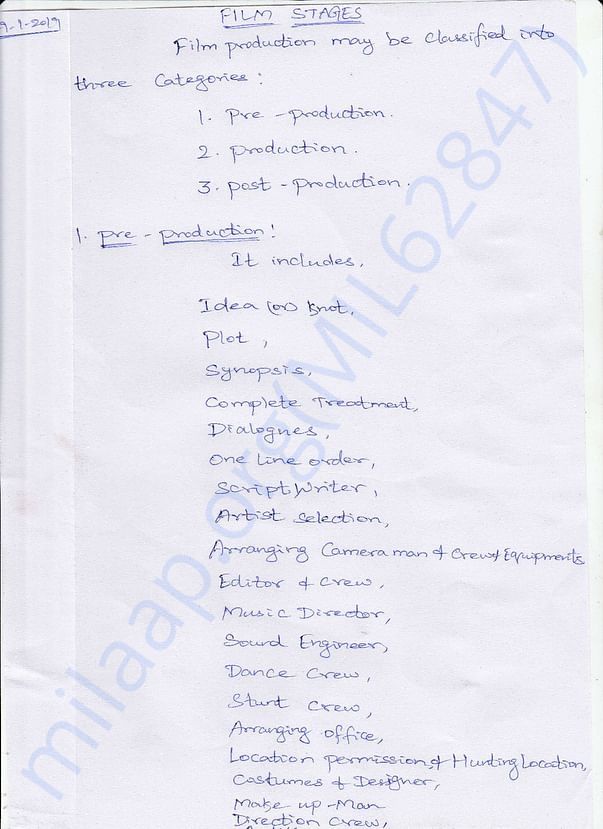 9-1-2019
FILM STAGES
Film production may be classified into
three Categories :
1. Pre - production.
2. production.
3. post - production.
1. Pre - production :
It includes,
Idea (or) knot,
Plot ,
Synopsis,
Complete Treatment,
Dialogues,
One Line order,
Script Writer,
Artist Selection,
Arranging Camera man & Crew & Equipments
Editor & Crew,
Music Director,
Sound Engineer,
Dance Crew,
Stunt Crew,
Arranging office,
Location permission, & Hunting Location,
Costumes & Designer,
Make up - Man
Direction Crew,
milaap.org(MIL62847)